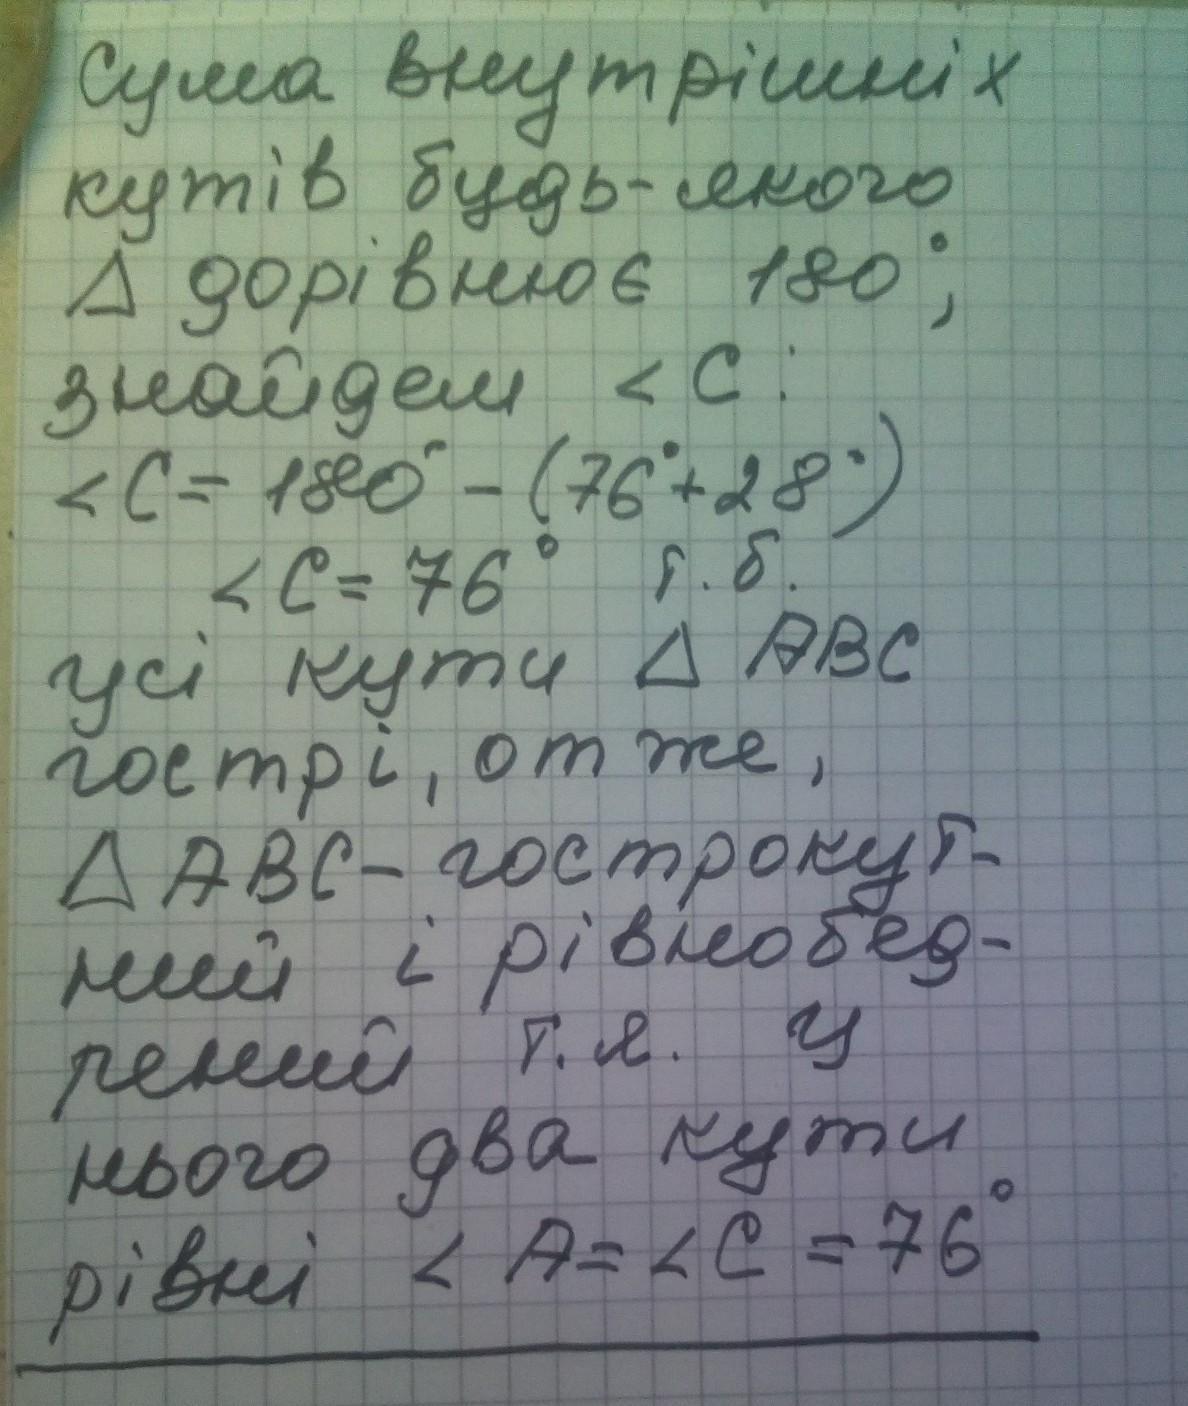 Сума внутрішніх
кутів будь-якого
Δ дорівнює 180°;
знайдем <C:
<C = 180° - (76° + 28°)
<C = 76° т.б.
усі кути Δ ABC
гострі, отже,
Δ ABC - гострокут-
ний і рівнобед-
рений т.я. у
нього два кути
рівні < A = < C = 76°